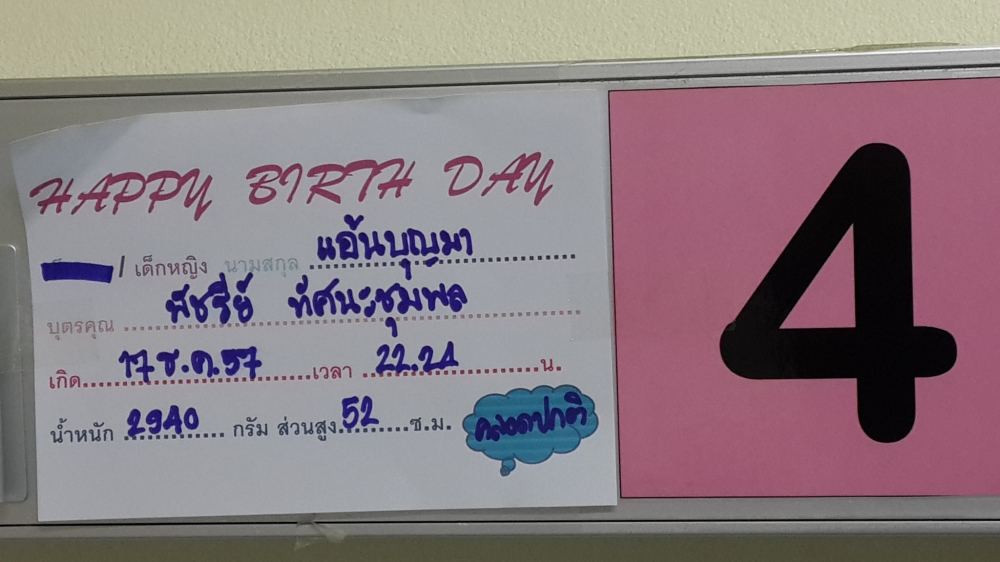 HAPPY BIRTH DAY
/ เด็กหญิง นามสกุล แอ้นบุญมา
บุตรคุณ พัชรีย์ ทัศนะชุมพล
เกิด 17 ธ.ค. 57 เวลา 22.21 น.
น้ำหนัก 2940 กรัม ส่วนสูง 52 ซ.ม.
คลอดปกติ
4